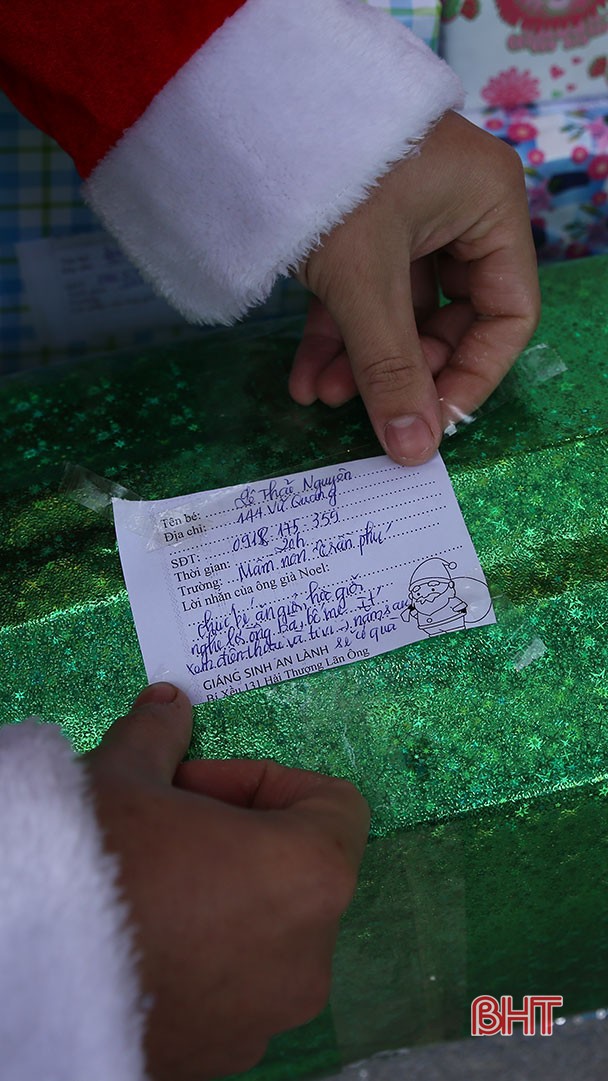 Tên bé: Lê Thảo Nguyên
Địa chỉ: 144 Vũ Quang
SĐT: 0918.175.359
Thời gian: 20h
Trường: Mầm non Tân phú
Lời nhắn của ông già Noel:
chúc bé ăn giỏi, học giỏi
nghe lời ông bà, bố mẹ. Ít
xem điện thoại và ti vi → năm sau
sẽ có quà
GIÁNG SINH AN LÀNH
Bí Xều 131 Hải Thượng Lãn Ông
BHT